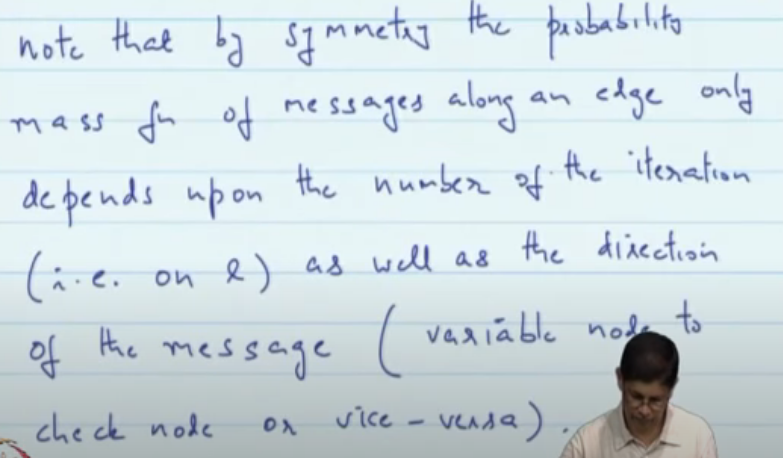 note that by symmetry the probability
mass fn of messages along an edge only
depends upon the number of the iteration
(i.e. on l) as well as the direction
of the message ( variable node to
check node or vice-versa).